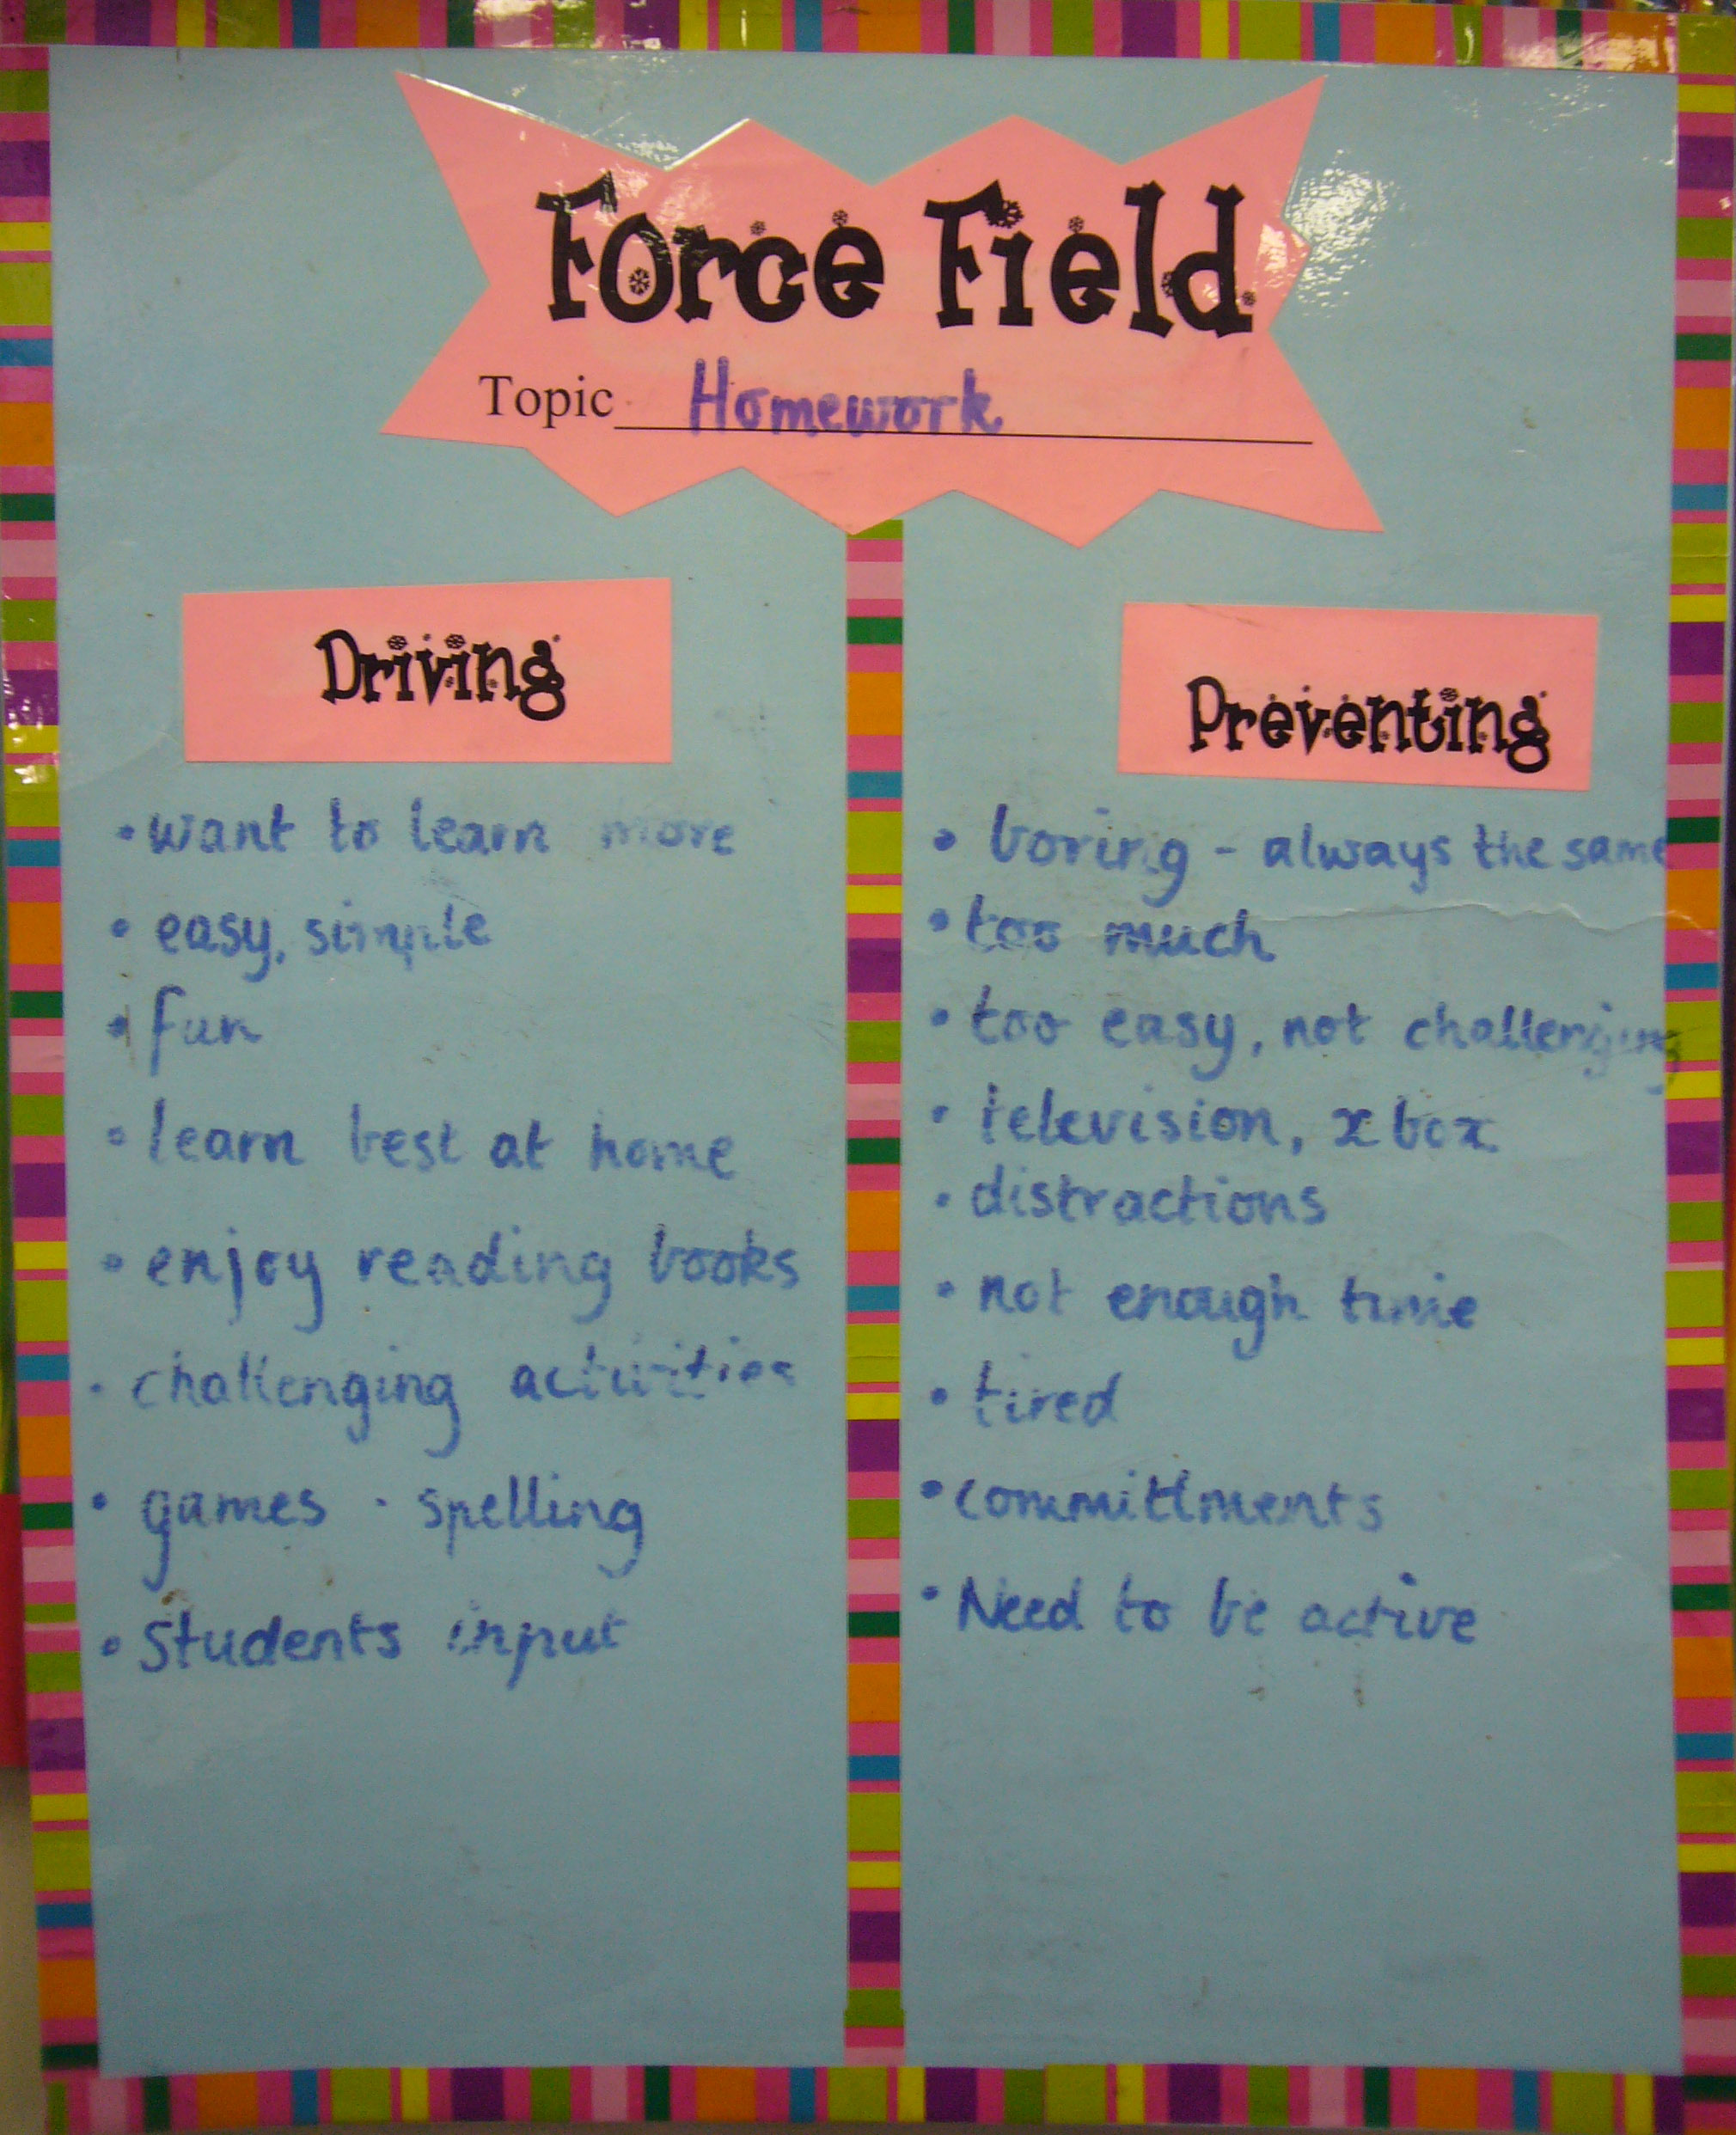 Force Field
Topic Homework
Driving
• want to learn more
• easy, simple
• fun
• learn best at home
• enjoy reading books
• challenging activities
• games - spelling
• Students input
Preventing
• boring - always the same
• too much
• too easy, not challenging
• television, x box
• distractions
• not enough time
• tired
• committments
• Need to be active